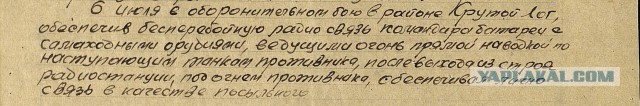 6 июля в оборонительном бою в районе Крутой Лог,
обеспечив бесперебойную радио связь командира батареи с
самоходными орудиями, ведущими огонь прямой наводкой по
наступающим танкам противника, после выхода из строя
радиостанции, под огнем противника, обеспечивал
связь в качестве посыльного.
YAPLAKAL.COM